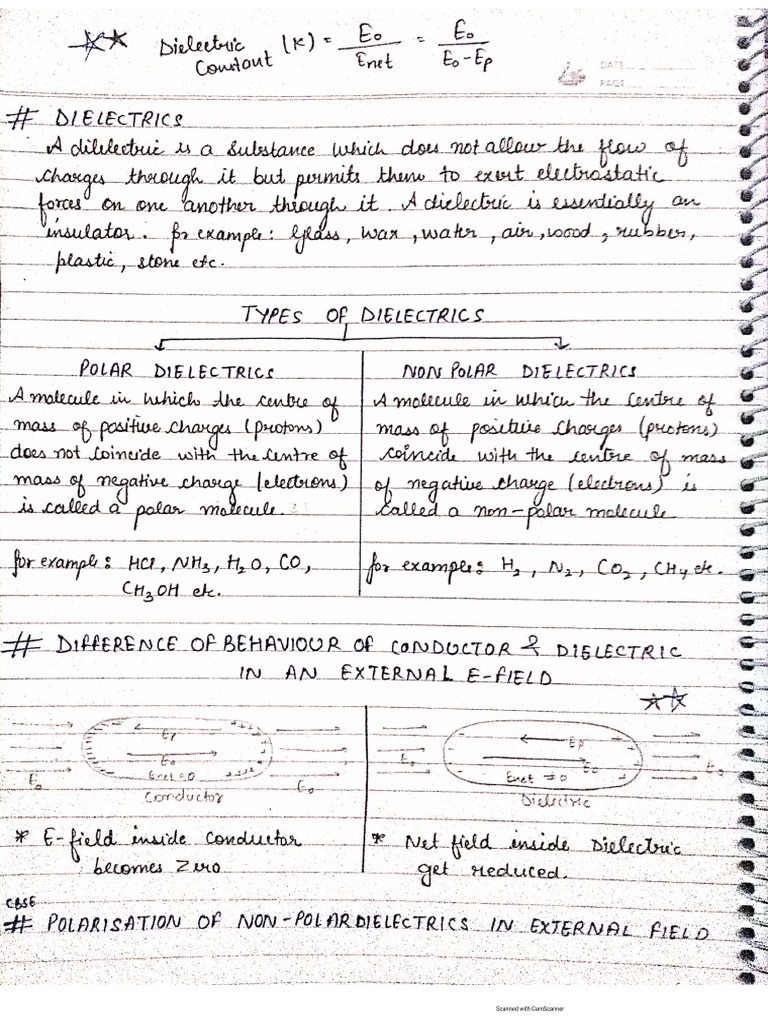 Dielectric Constant (K) = E₀/Enet = E₀/E₀-Ep
DATE
PAGE
# DIELECTRICS
A dilelectric is a substance which does not allow the flow of
charges through it but permits them to exert electrostatic
forces on one another through it. A dielectric is essentially an
insulator. for example: Glass, wax, water, air, wood, rubber,
plastic, stone etc.
TYPES OF DIELECTRICS
POLAR DIELECTRICS
A molecule in which the centre of
mass of positive charges (protons)
does not coincide with the centre of
mass of negative charge (electrons)
is called a polar molecule.
for example: HCl, NH₃, H₂O, CO,
CH₃OH etc.
NON POLAR DIELECTRICS
A molecule in which the centre of
mass of positive charges (protons)
coincide with the centre of mass
of negative charge (electrons) is
called a non-polar molecule
for example: H₂, N₂, CO₂, CH₄ etc.
# DIFFERENCE OF BEHAVIOUR OF CONDUCTOR & DIELECTRIC
IN AN EXTERNAL E-FIELD
Ep
E₀
Enet = 0
E₀
E₀
Conductor
* E-field inside conductor
becomes Zero
Ep
E₀
E₀
Enet ≠ 0
E₀
Dielectric
* Net field inside Dielectric
get reduced.
CBSE
# POLARISATION OF NON-POLAR DIELECTRICS IN EXTERNAL FIELD
Scanned with CamScanner